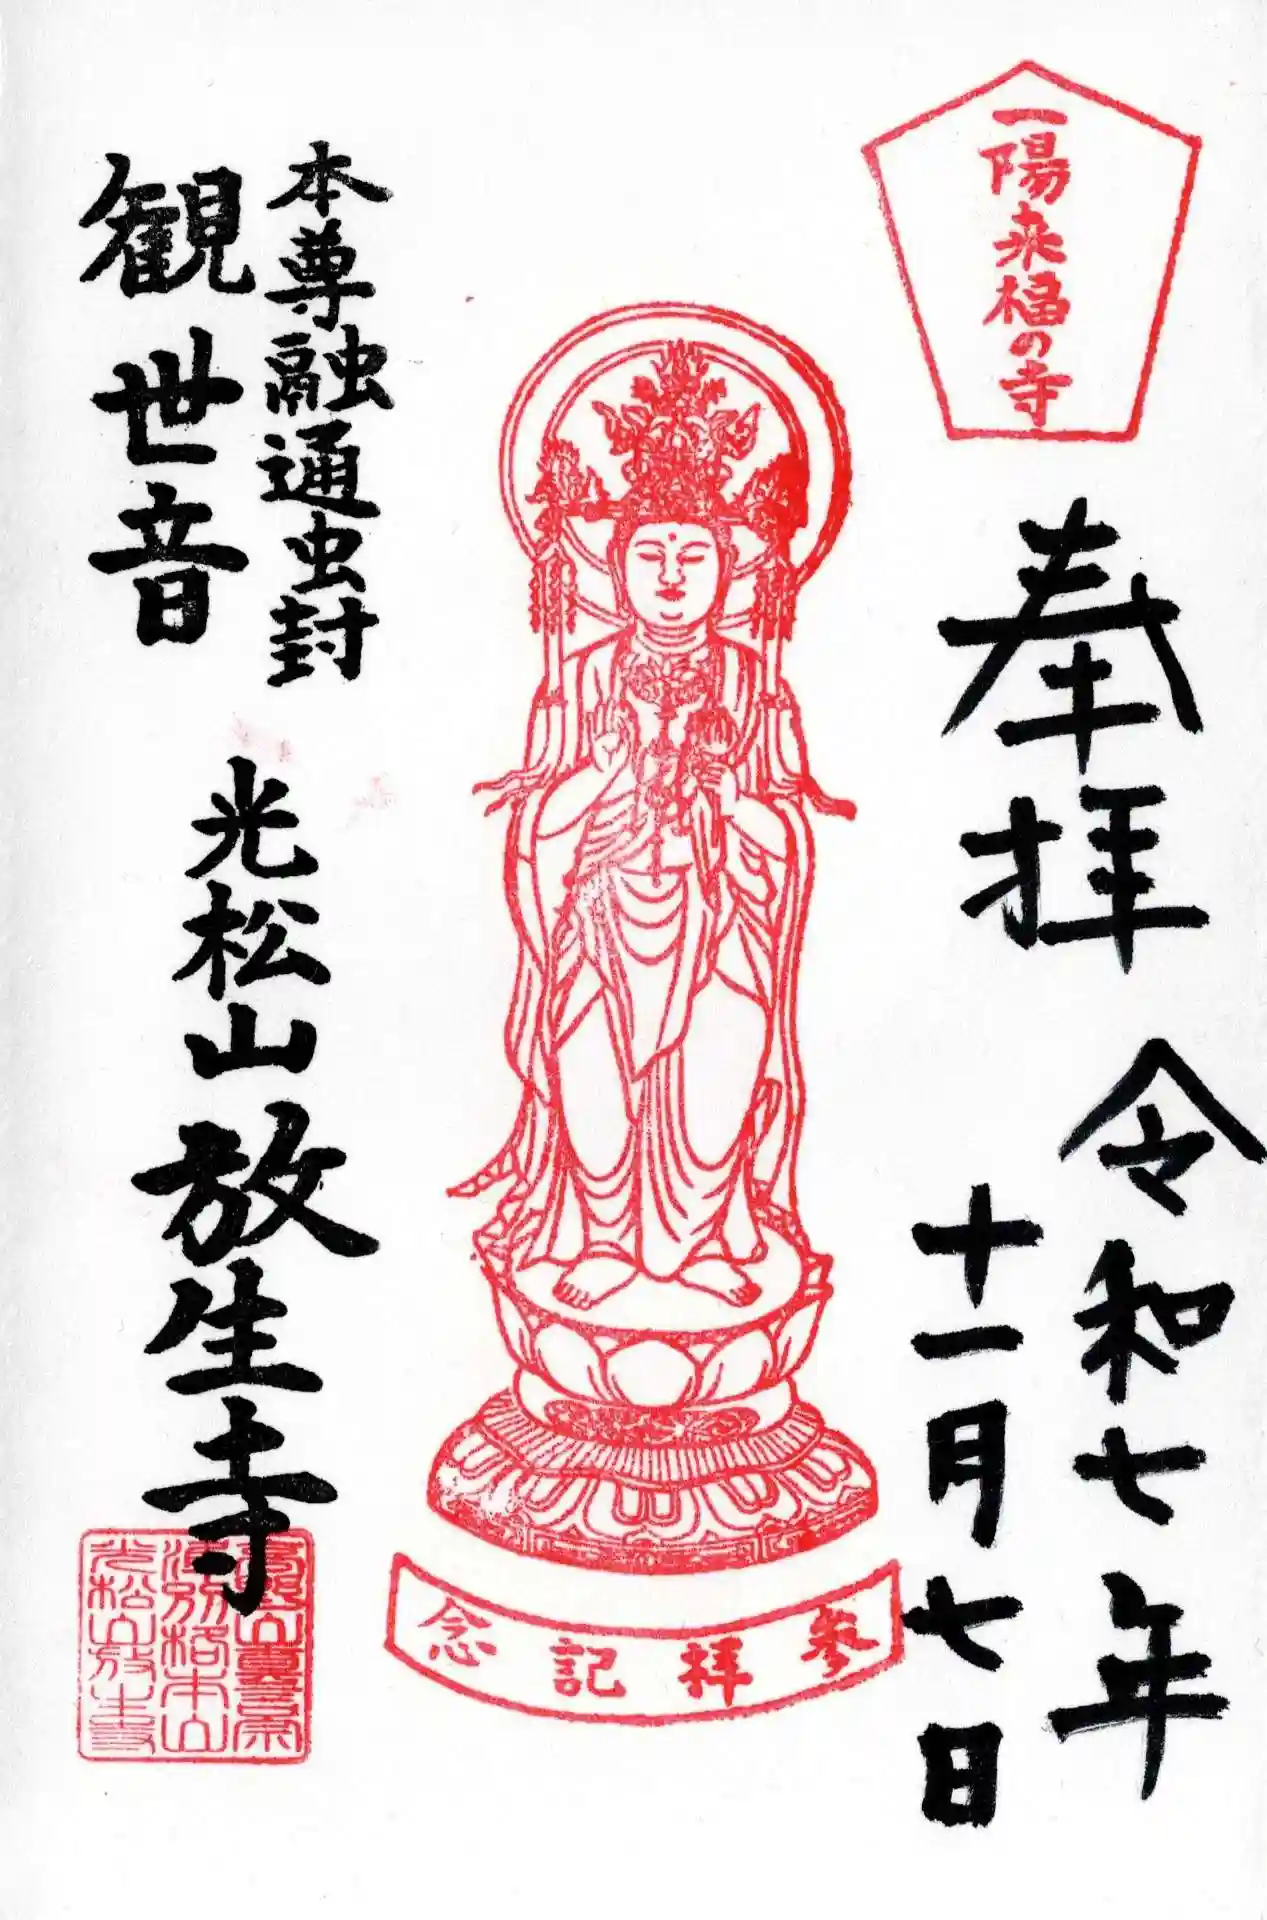 一陽来福の寺
奉拝
令和七年
十一月七日
参拝記念
本尊融通虫封
観世音
光松山
放生寺
高野山真言宗
準別格本山
光松山放生寺